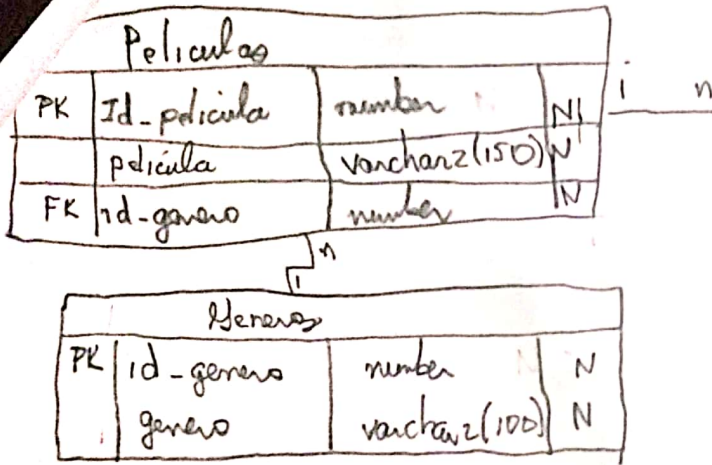 Peliculas
PK Id_pelicula number N
1 n
pelicula varchar2(150) N
FK id-genero number N
n
1
Generos
PK id-genero number N
genero varchar2(100) N